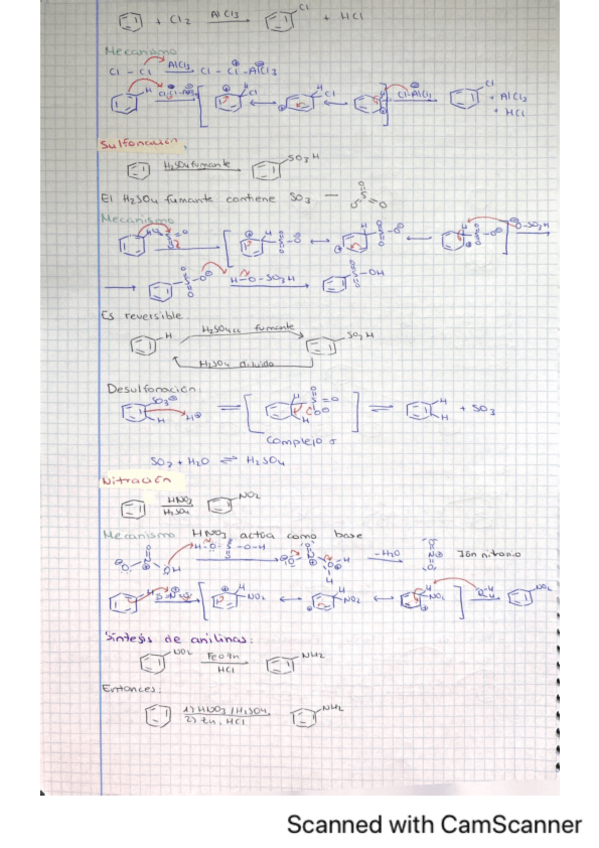 + Cl2 AlCl3 Cl + HCl
Mecanismo
Cl - Cl AlCl3 Cl - Cl - AlCl3
H Cl H Cl Cl-AlCl3 Cl + AlCl3
+ HCl
Sulfonación,
H2SO4 fumante SO3H
El H2SO4 fumante contiene SO3 —
Mecanismo
O-SO3H
H-O-SO3H -OH
Es reversible
H H2SO4 fumante SO3H
H2SO4 diluido
Desulfonación:
SO3 H H H + SO3
Complejo σ
SO3 + H2O ⇌ H2SO4
Nitración
HNO3 NO2
H2SO4
Mecanismo HNO3 actúa como base
OH -H2O Ión nitronio
NO2 NO2 NO2 NO2
Síntesis de anilinas:
NO2 Fe o Zn NH2
HCl
Entonces:
1) HNO3 / H2SO4 NH2
2) Zn, HCl
Scanned with CamScanner